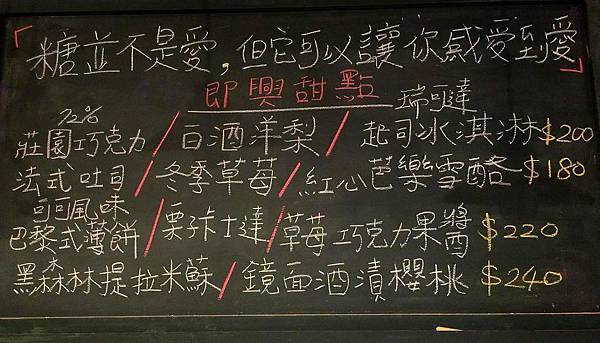 「糖並不是愛，但它可以讓你感受至愛」
即興甜點
72% 瑞可達
莊園巧克力/白酒洋梨/起司冰淇淋$200
法式吐司/冬季草莓/紅心芭樂雪酪$180
可可風味
巴黎式薄餅/栗子卡士達/草莓巧克力果醬$220
黑森林提拉米蘇/鏡面酒漬櫻桃$240